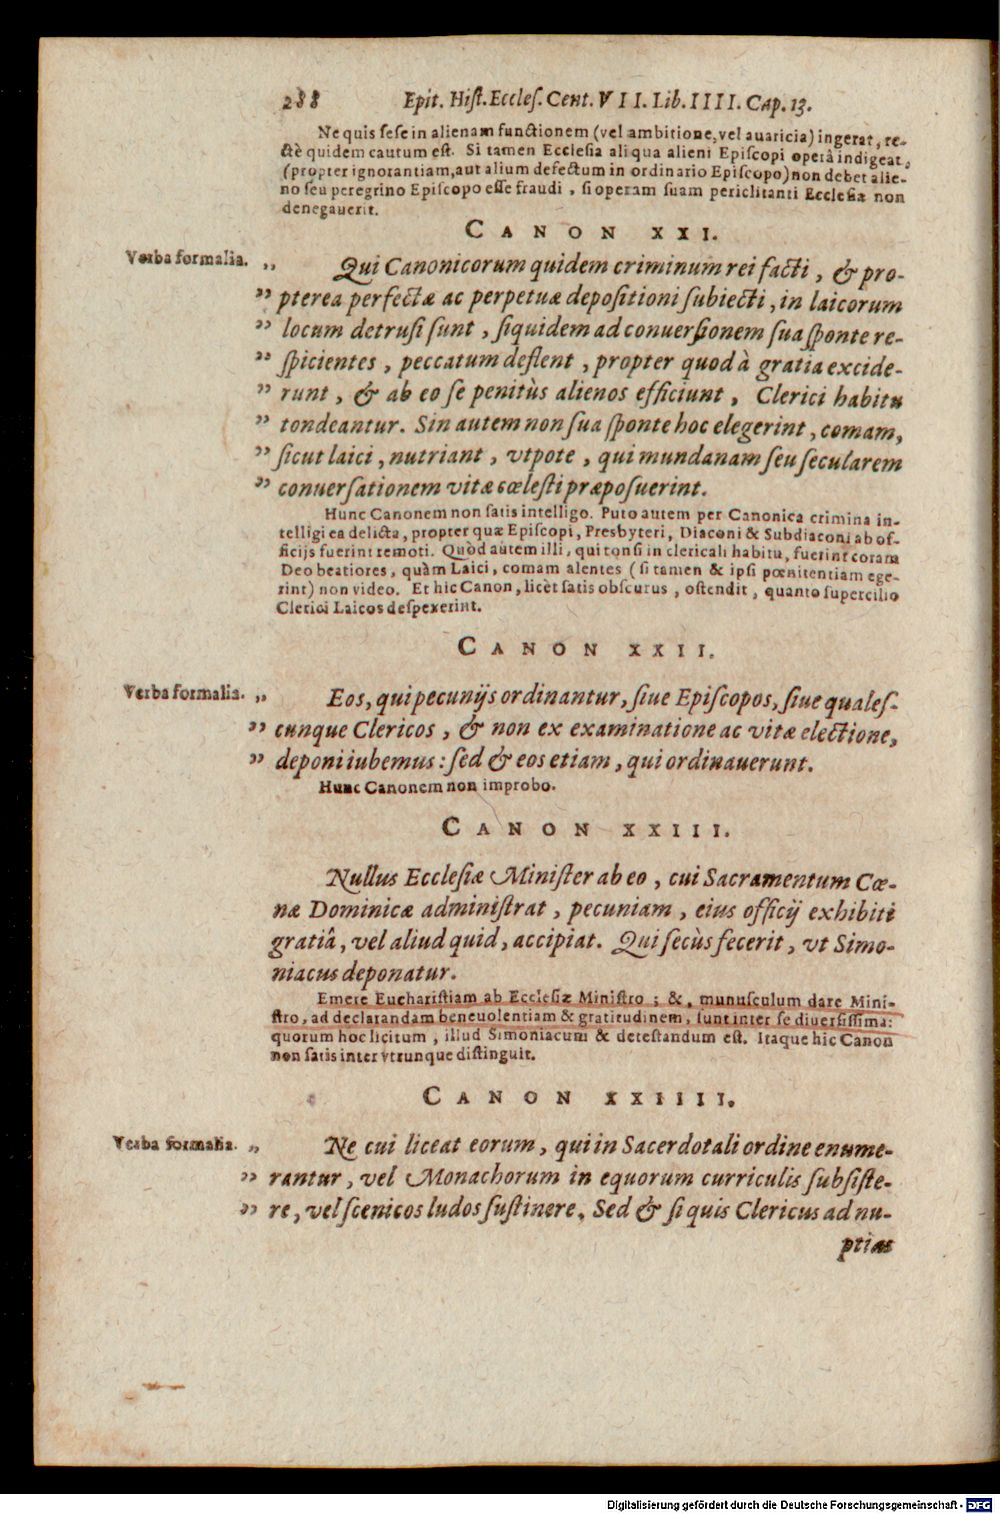 288 Epit. Hiſt. Eccleſ. Cent. VII. Lib. IIII. Cap. 13.
Ne quis ſeſe in alienam functionem (vel ambitione, vel auaricia) ingerat, re-
ctè quidem cautum eſt. Si tamen Eccleſia aliqua alieni Epiſcopi operâ indigeat,
(propter ignorantiam, aut alium defectum in ordinario Epiſcopo) non debet alie-
no ſeu peregrino Epiſcopo eſſe fraudi, ſi operam ſuam periclitanti Eccleſiæ non
denegauerit.
CANON XXI.
Verba formalia. „ Qui Canonicorum quidem criminum rei facti, & pro-
” pterea perfectæ ac perpetuæ depoſitioni ſubiecti, in laicorum
” locum detruſi ſunt, ſiquidem ad conuerſionem ſua ſponte re-
” ſpicientes, peccatum deflent, propter quod à gratia excide-
” runt, & ab eo ſe penitùs alienos efficiunt, Clerici habitu
” tondeantur. Sin autem non ſua ſponte hoc elegerint, comam,
” ſicut laici, nutriant, vtpote, qui mundanam ſeu ſecularem
” conuerſationem vitæ cœleſti præpoſuerint.
Hunc Canonem non ſatis intelligo. Puto autem per Canonica crimina in-
telligi ea delicta, propter quæ Epiſcopi, Presbyteri, Diaconi & Subdiaconi ab of-
ficijs fuerint remoti. Quòd autem illi, qui tonſi in clericali habitu, fuerint coram
Deo beatiores, quàm Laici, comam alentes (ſi tamen & ipſi pœnitentiam ege-
rint) non video. Et hic Canon, licèt ſatis obſcurus, oſtendit, quanto ſupercilio
Clerici Laicos deſpexerint.
CANON XXII.
Verba formalia. „ Eos, qui pecunijs ordinantur, ſiue Epiſcopos, ſiue qualeſ-
” cunque Clericos, & non ex examinatione ac vitæ electione,
” deponi iubemus: ſed & eos etiam, qui ordinauerunt.
Hunc Canonem non improbo.
CANON XXIII.
Nullus Eccleſiæ Miniſter ab eo, cui Sacramentum Cœ-
næ Dominicæ adminiſtrat, pecuniam, eius officij exhibiti
gratiâ, vel aliud quid, accipiat. Qui ſecùs fecerit, vt Simo-
niacus deponatur.
Emere Euchariſtiam ab Eccleſiæ Miniſtro; &, munuſculum dare Mini-
ſtro, ad declarandam beneuolentiam & gratitudinem, ſunt inter ſe diuerſiſſima:
quorum hoc licitum, illud Simoniacum & deteſtandum eſt. Itaque hic Canon
non ſatis inter vtrunque diſtinguit.
CANON XXIIII.
Verba formalia. „ Ne cui liceat eorum, qui in Sacerdotali ordine enume-
” rantur, vel Monachorum in equorum curriculis ſubſiſte-
” re, vel ſcenicos ludos ſuſtinere. Sed & ſi quis Clericus ad nu-
ptias
Digitalisierung gefördert durch die Deutsche Forschungsgemeinschaft - DFG